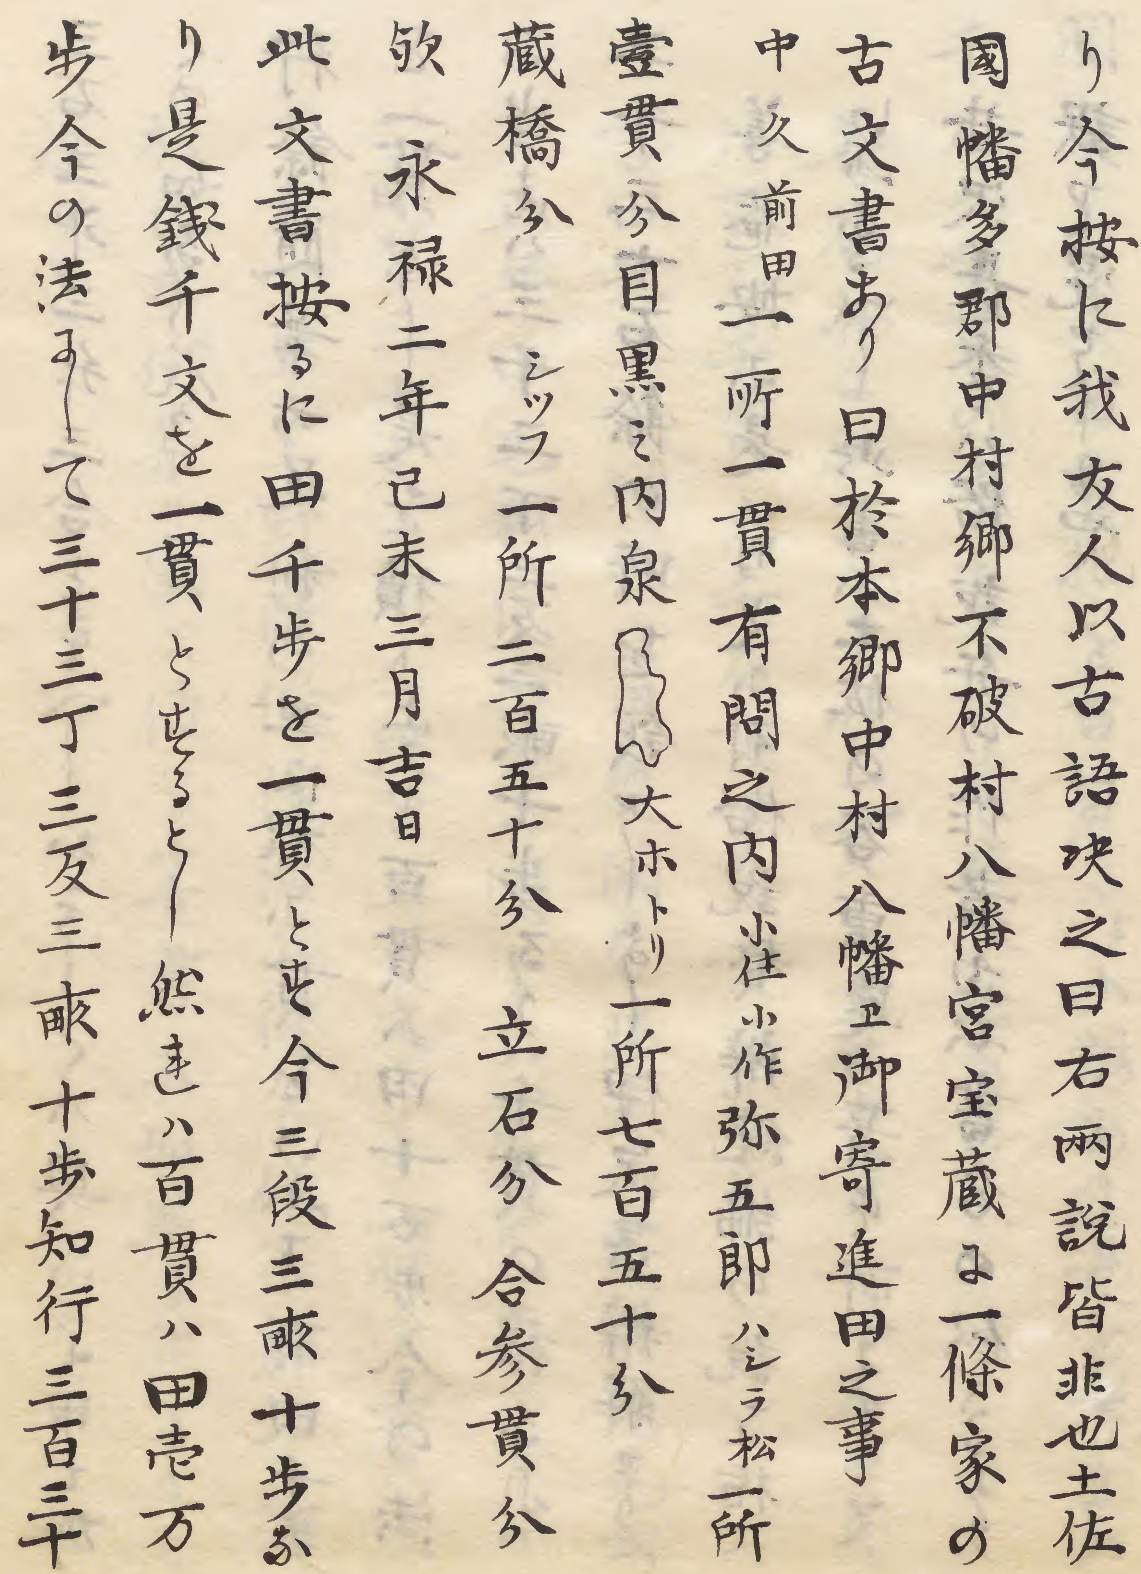 り今按に我友人以古語决之曰右兩說皆非也土佐
國幡多郡中村郷不破村八幡宮宝蔵に一條家の
古文書あり曰於本郷中村八幡ヱ御寄進田之事
中久前田一所一貫有問之内小住小作弥五郎ハシラ松一所
壹貫分目黒ミ内泉大ホトリ一所七百五十分
蔵橋分シツフ一所二百五十分 立石分 合参貫分
欤 永禄二年己未三月吉日
此文書按るに田千歩を一貫とす今三段三畝十歩な
り是銭千文を一貫とするとし然れハ百貫ハ田壱万
歩今の法にして三十三丁三反三畝十歩知行三百三十